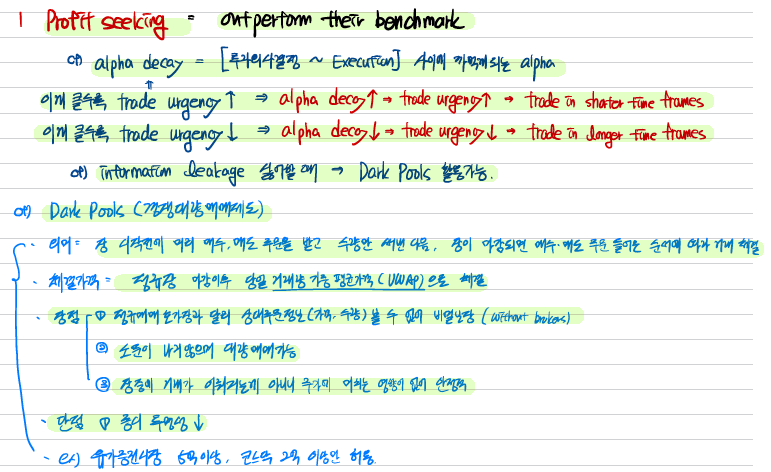 1 Profit seeking = outperform their benchmark
cf) alpha decay = [투자의사결정 ~ Execution] 사이에 까먹게 되는 alpha
이게 클수록 trade urgency ↑ ⇒ alpha decay ↑ → trade urgency ↑ → trade in shorter time frames
이게 클수록 trade urgency ↓ ⇒ alpha decay ↓ → trade urgency ↓ → trade in longer time frames
cf) information leakage 싫어할 때 → Dark Pools 활용가능.
cf) Dark Pools (경쟁대량매매제도)
· 의의 = 장 시작전에 미리 매수, 매도 주문을 받고 수량만 써낸 다음, 장이 마감되면 매수·매도 주문 들어온 순서에 따라 거래 체결
· 체결가격 = 정규장 마감이후 당일 거래량 가중 평균가격 (VWAP) 으로 체결
· 장점 ① 정규매매 호가창과 달리 상대주문정보 (가격, 수량) 볼 수 없어 비밀보장 (without brokers)
② 소문이 나지않으며 대량매매가능
③ 장중에 거래가 이뤄지는게 아니니 주가에 미치는 영향이 없어 안정적
· 단점 ① 증시 투명성 ↓
· ex) 유가증권시장 5억이상, 코스닥 2억 이상만 허용.